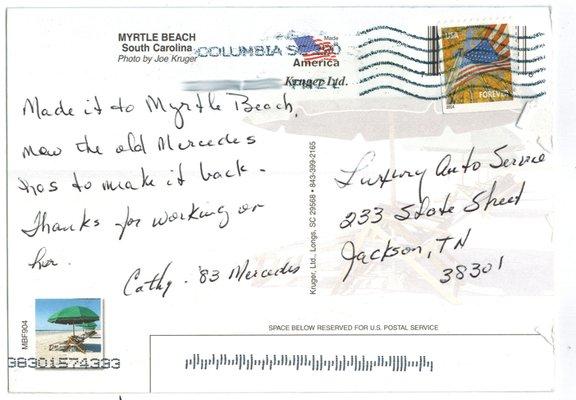 MYRTLE BEACH
South Carolina
Photo by Joe Kruger
COLUMBIA SC
Made
America
Kruger Ltd.
USA
FOREVER
Made it to Myrtle Beach,
now the old Mercedes
has to make it back.
Thanks for working on
her.
Cathy. '83 Mercedes
Kruger, Ltd., Longs, SC 29568 • 843-399-2165
Luxury Auto Service
233 State Street
Jackson, TN
38301
MBF904
SPACE BELOW RESERVED FOR U.S. POSTAL SERVICE
38301574333